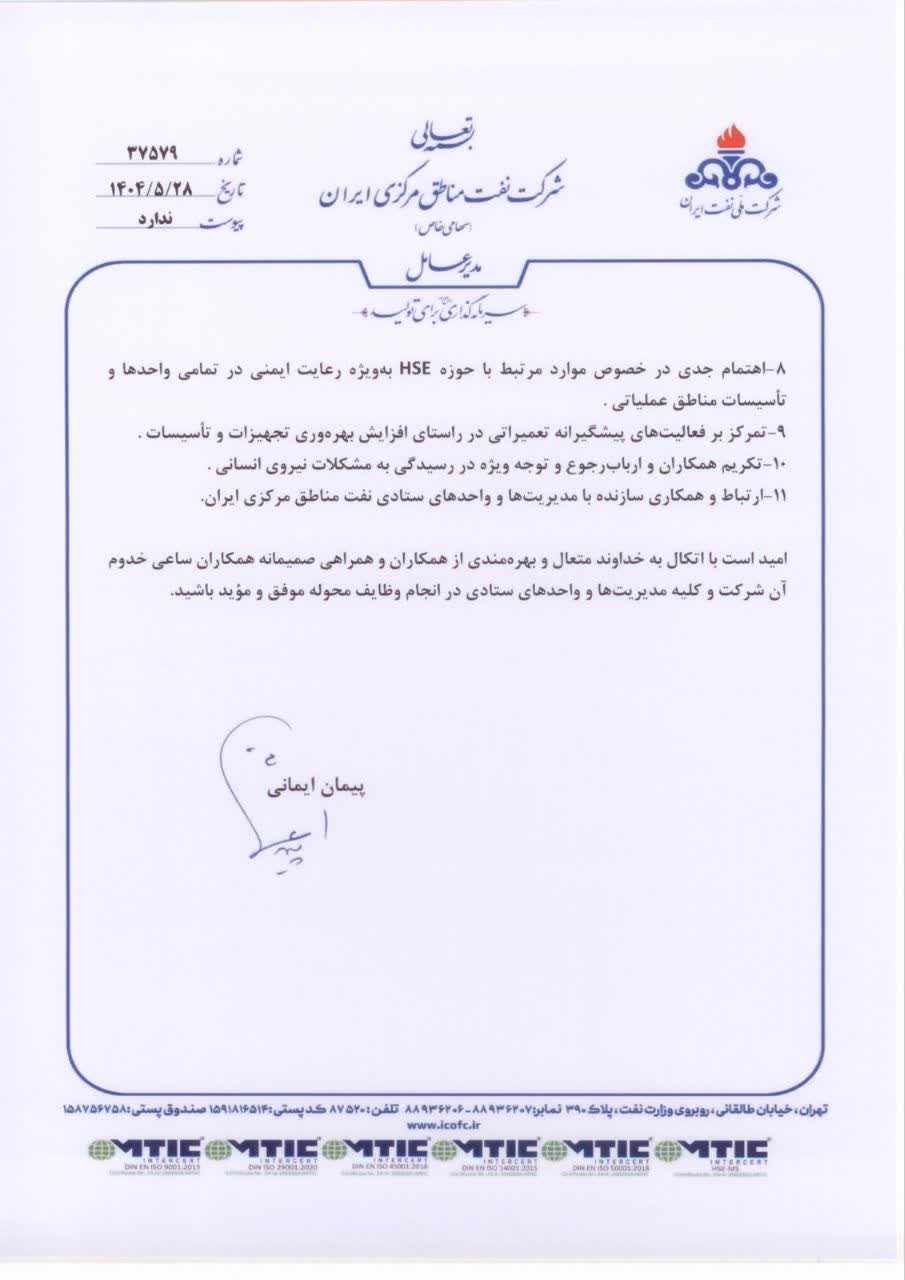 بسمه تعالی
شرکت ملی نفت ایران
شرکت نفت مناطق مرکزی ایران
(سهامی خاص)
مدیرعامل
شماره ۳۷۵۷۹
تاریخ ۱۴۰۴/۵/۲۸
پیوست ندارد
سرمایه‌گذاری برای تولید
۸-اهتمام جدی در خصوص موارد مرتبط با حوزه HSE به‌ویژه رعایت ایمنی در تمامی واحدها و
تأسیسات مناطق عملیاتی .
۹-تمرکز بر فعالیت‌های پیشگیرانه تعمیراتی در راستای افزایش بهره‌وری تجهیزات و تأسیسات .
۱۰-تکریم همکاران و ارباب‌رجوع و توجه ویژه در رسیدگی به مشکلات نیروی انسانی .
۱۱-ارتباط و همکاری سازنده با مدیریت‌ها و واحدهای ستادی نفت مناطق مرکزی ایران.
امید است با اتکال به خداوند متعال و بهره‌مندی از همکاران و همراهی صمیمانه همکاران ساعی خدوم
آن شرکت و کلیه مدیریت‌ها و واحدهای ستادی در انجام وظایف محوله موفق و مؤید باشید.
پیمان ایمانی
تهران، خیابان طالقانی، روبروی وزارت نفت، پلاک ۳۹۰ نمابر: ۸۸۹۳۶۲۰۷-۸۸۹۳۶۲۰۶ تلفن: ۸۷۵۲۰ کد پستی: ۱۵۹۱۸۱۶۵۱۴ صندوق پستی: ۱۵۸۷۵۶۷۵۸
www.icofc.ir
MTIC MTIC MTIC MTIC MTIC MTIC
INTERCERT INTERCERT INTERCERT INTERCERT INTERCERT INTERCERT
DIN EN ISO 9001:2015 DIN EN ISO 29001:2020 DIN EN ISO 45001:2018 DIN EN ISO 14001:2015 DIN EN ISO 50001:2018 HSE-MS